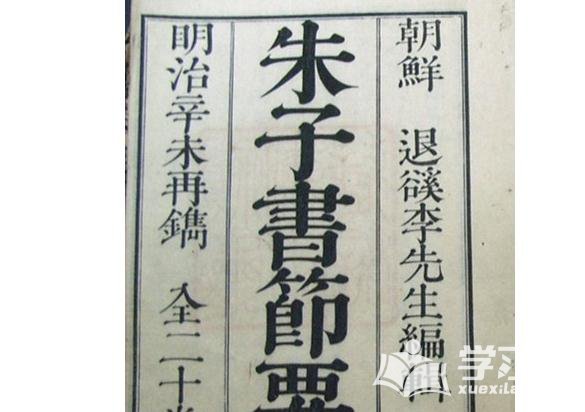 朝鮮 退谿李先生編
朱子書節要
明治辛未再鐫 全二十
学
xuexila